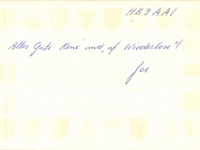 HB9AAI
Alles Gute René und „uf Wiederlose"!
Joe